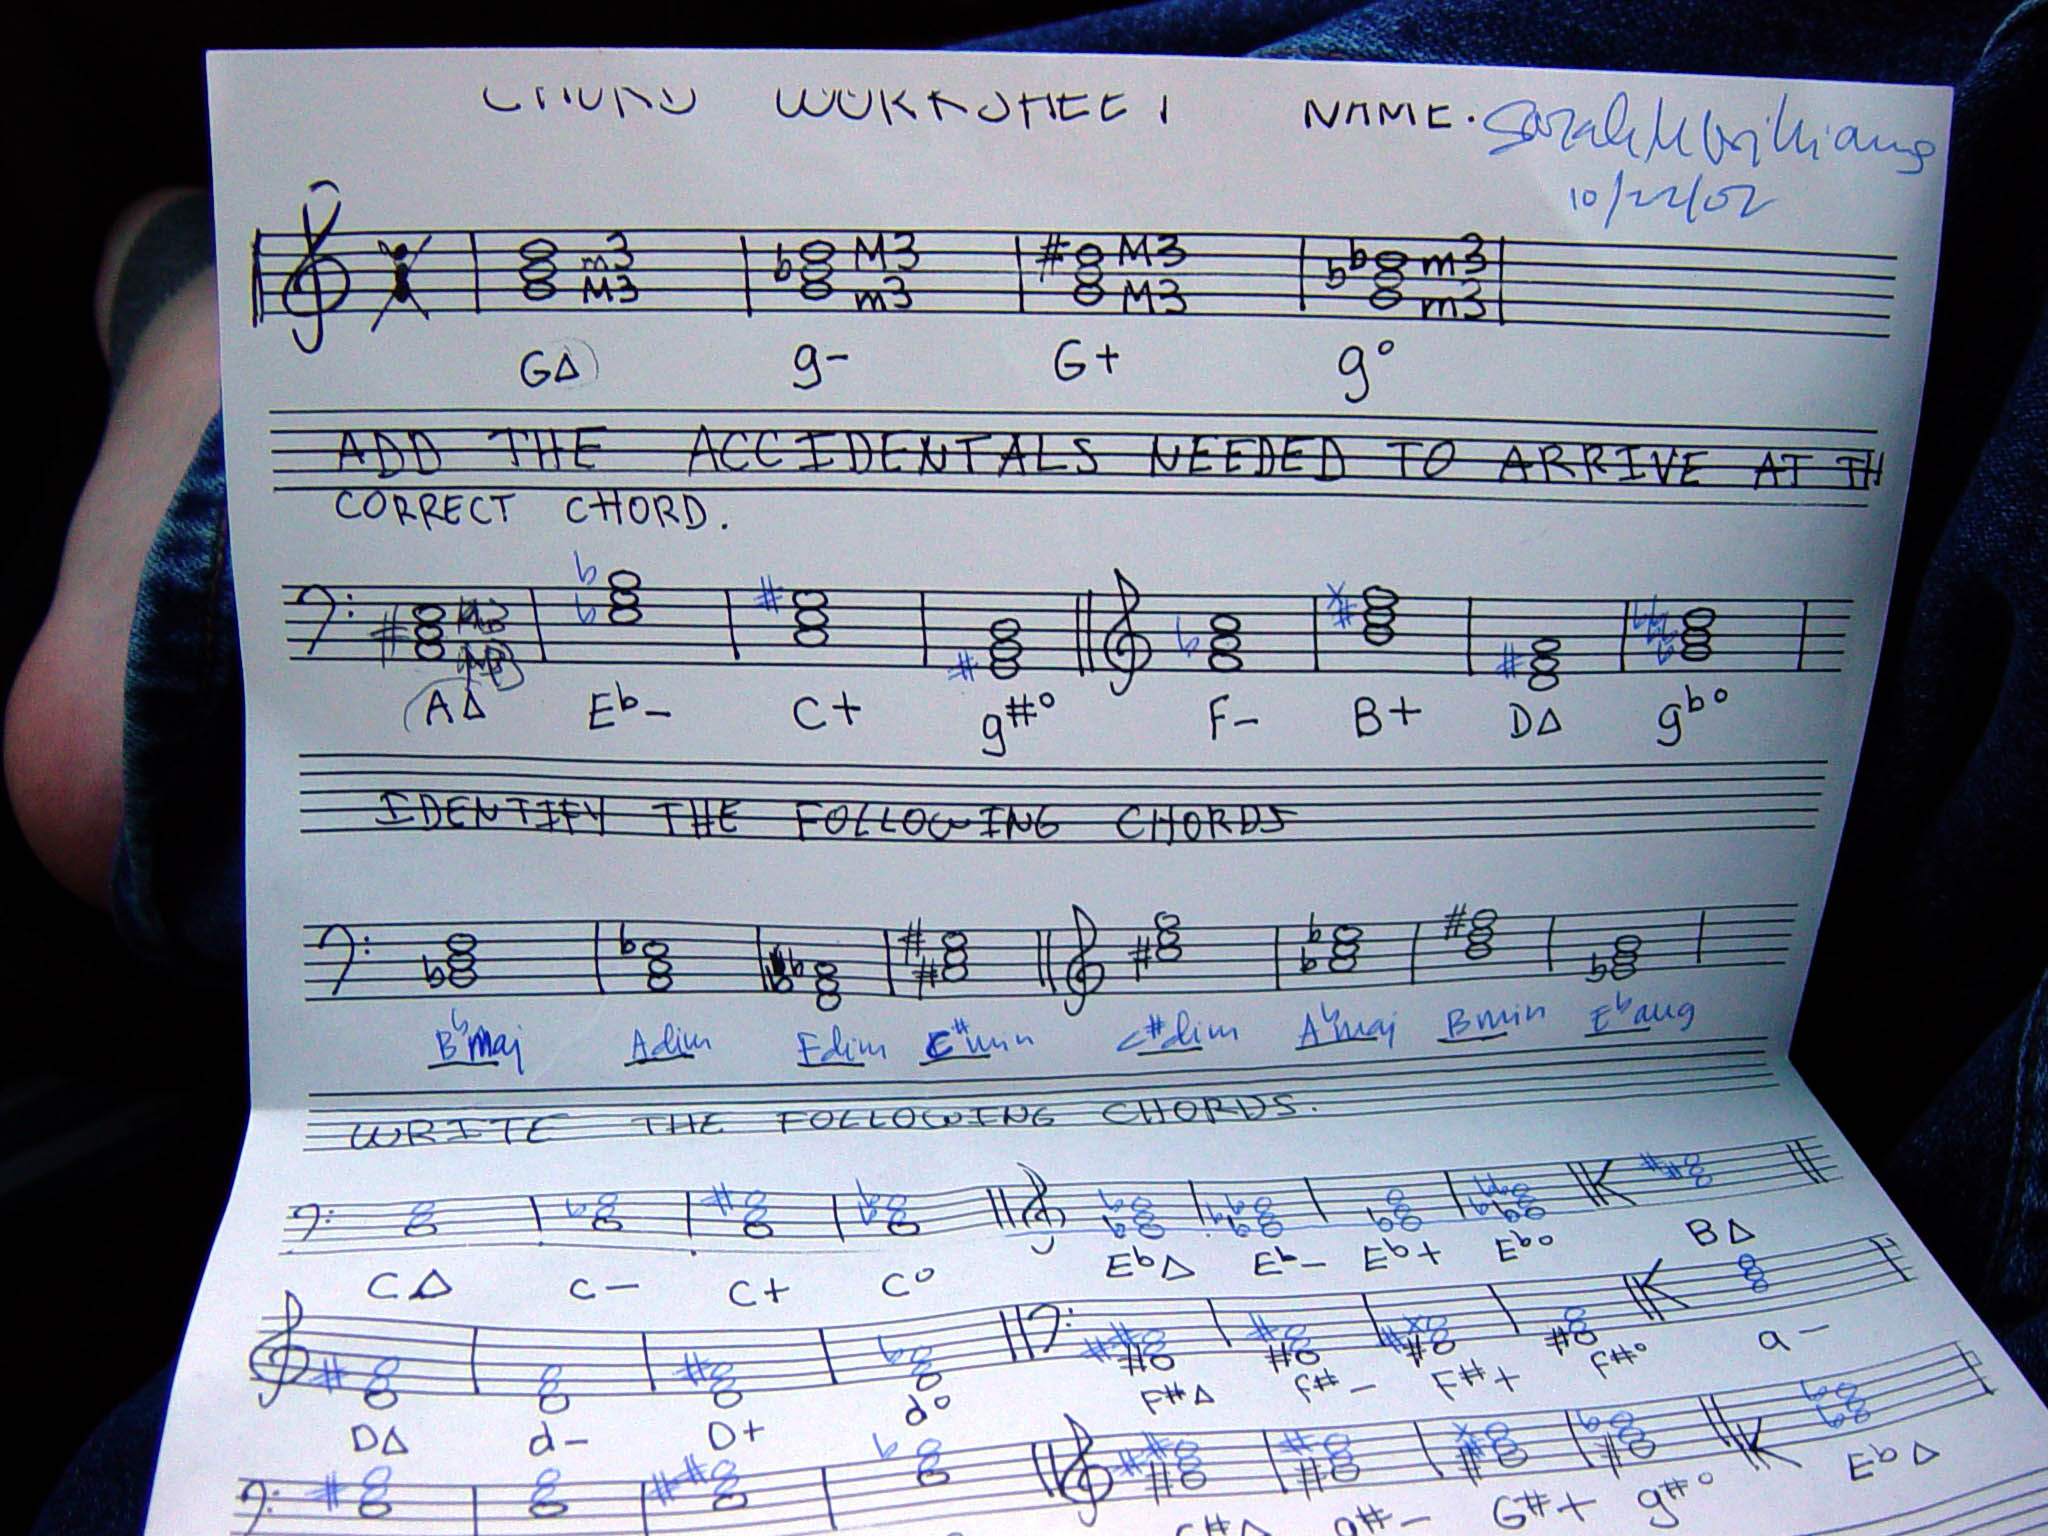 CHORD WORKSHEET NAME. Sarah M Williams
10/22/02
m3 M3 M3 m3
M3 m3 M3 m3
GΔ g- G+ g°
ADD THE ACCIDENTALS NEEDED TO ARRIVE AT TH
CORRECT CHORD.
AΔ E♭- C+ g#° F- B+ DΔ g♭°
IDENTIFY THE FOLLOWING CHORDS
B♭maj Adim Fdim C#min C#dim A♭maj Bmin E♭aug
WRITE THE FOLLOWING CHORDS.
CΔ C- C+ C° E♭Δ E♭- E♭+ E♭° BΔ
DΔ d- D+ d° F#Δ F#- F#+ F#° a-
G#Δ g#- G#+ g#° E♭Δ